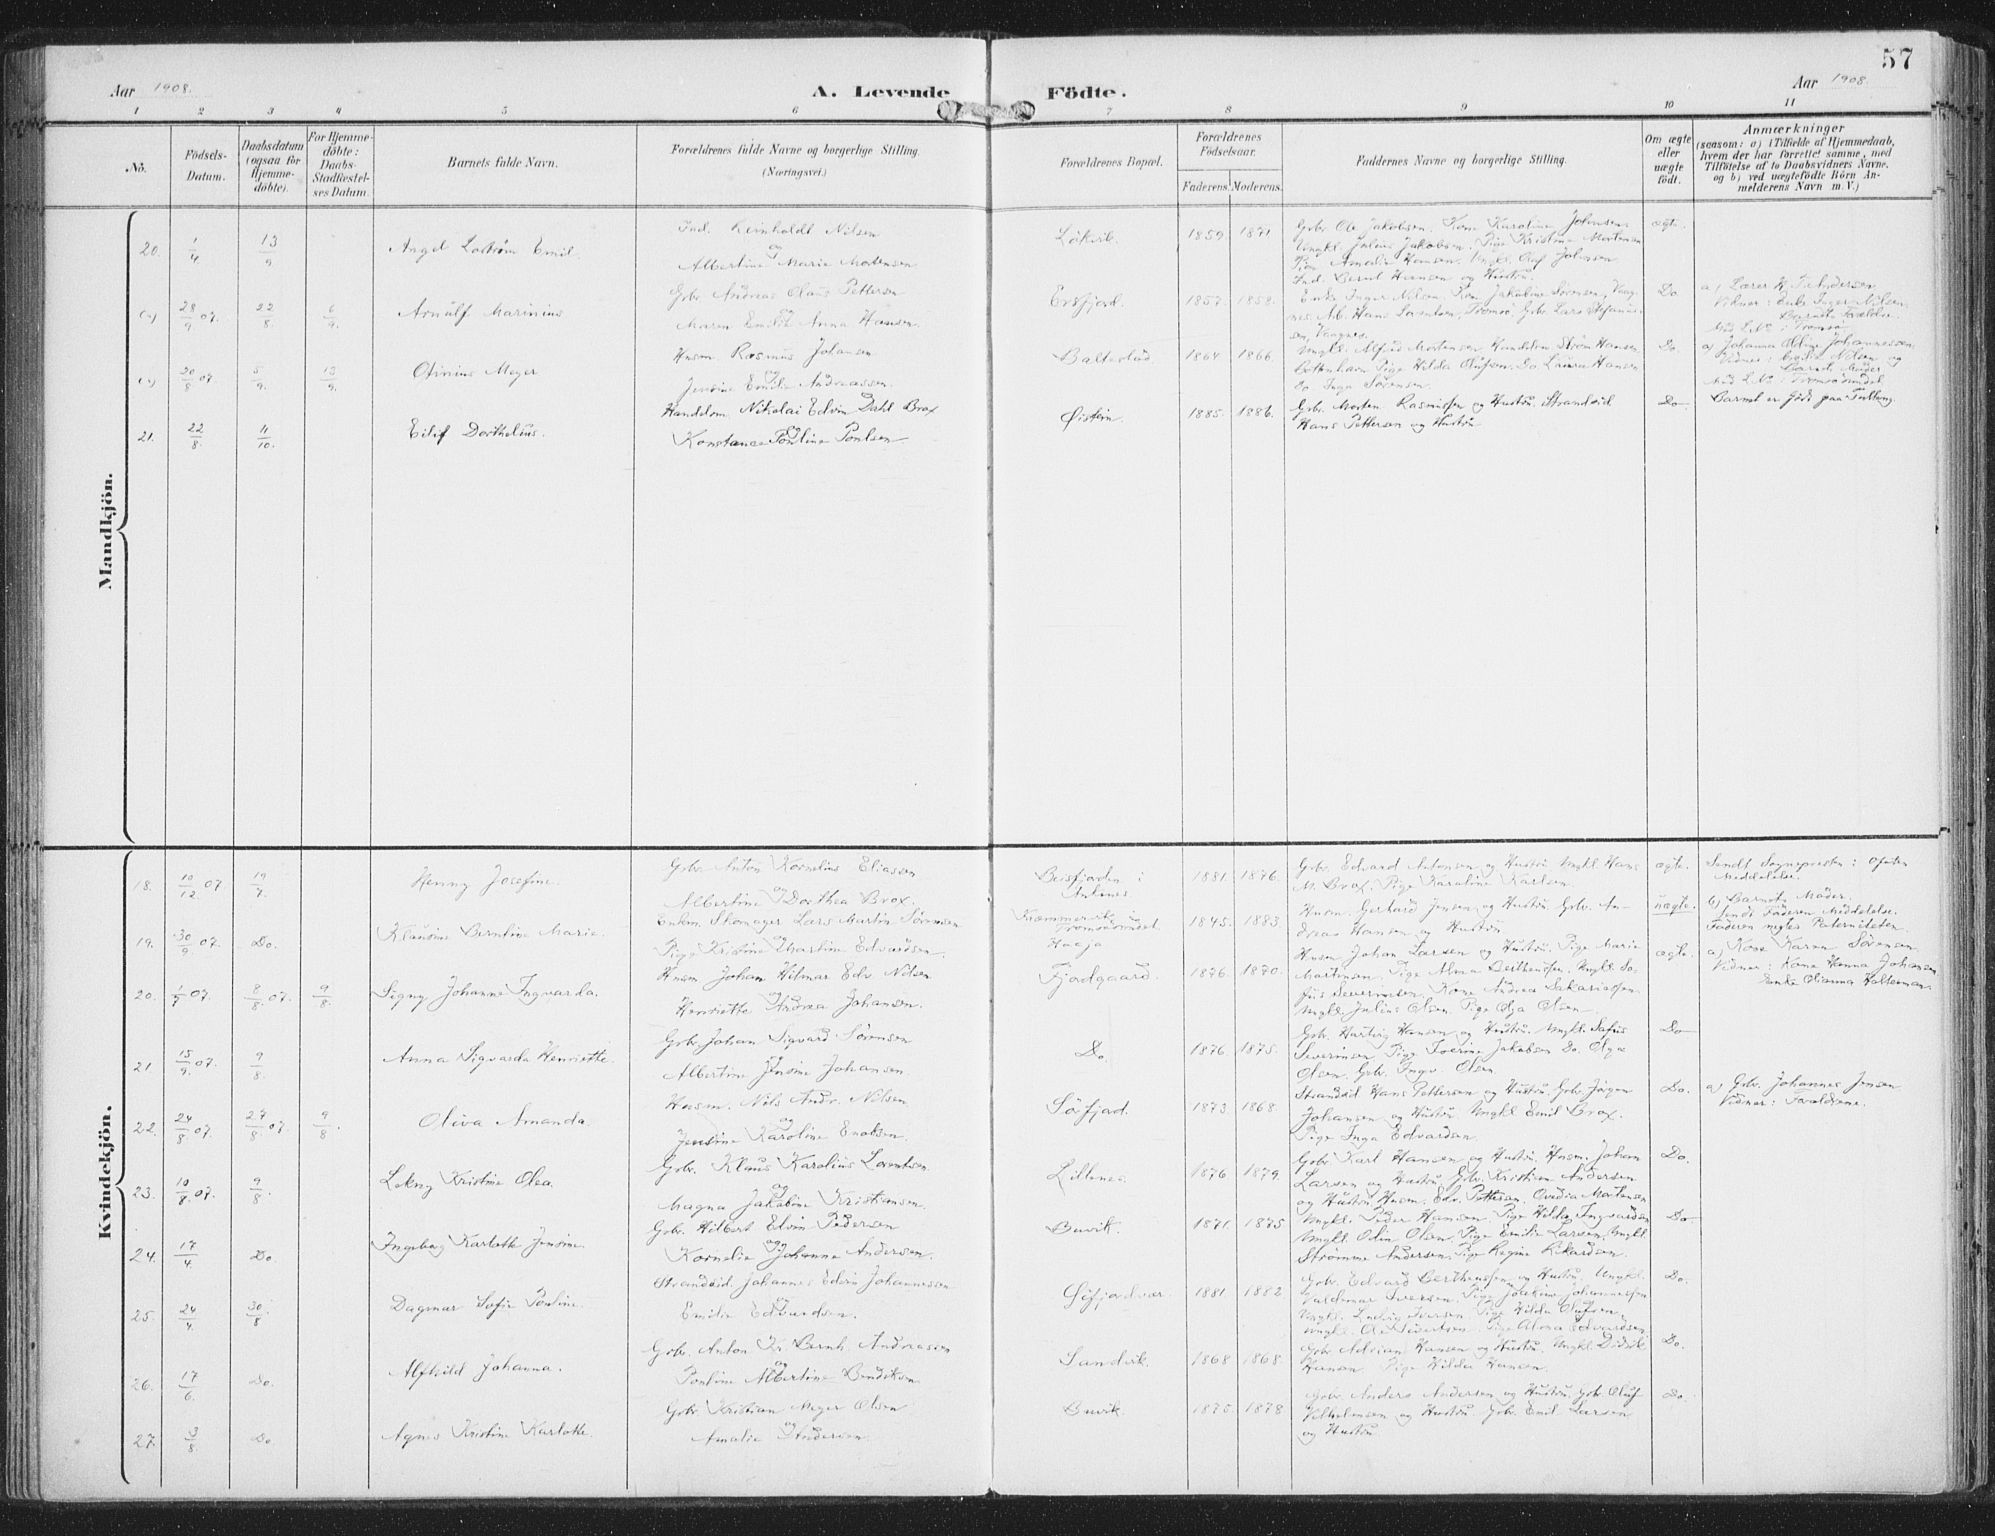 57
Aar 1908. A. Levende Födte. Aar 1908.
1 2 3 4 5 6 7 8 9 10 11
No.
Födsels-
Datum.
Daabsdatum
(ogsaa for
Hjemme-
döbte).
For Hjemme-
döbte:
Daabs-
Stadfæstel-
ses Datum.
Barnets fulde Navn.
Forældrenes fulde Navne og borgerlige Stilling.
(Næringsvei.)
Forældrenes Bopæl.
Forældrenes
Födselsaar.
Faderens. Moderens.
Faddernes Navne og borgerlige Stilling.
Om ægte
eller
uægte
födt.
Anmærkninger
(saasom: a) i Tilfælde af Hjemmedaab,
hvem der har forrettet samme, med
Tilföielse af to Daabsvidners Navne,
og b) ved uægtefödte Börn An-
melderens Navn m. V.)
Mandkjön.
20. 1/4 13/9 Emil.
Ind. Reinholdt Nilsen
og
Albertine Marie Mortensen
1859. 1871
Gbr. Ole Jakobsen. Kone Karoline Johnsen
Ungkl. Julius Jakobsen. Pige Kristine Mortensen
Pige Amalie Hansen. Ungkl. Olaf Johnsen
Ind. Bernt Hansen og Hustru.
ægte.
28/9 07. 22/8. 6/9. Arnulf Marinius
Gbr. Andreas Olaus Pettersen
og
Maren Emilie Anna Hansen.
Ersfjord. 1857. 1858.
Enke Inger Nilsen, Kone Jakobine Sörensen, Vaag-
nes. Arb. Hans Sörensen, Tromsö. Gbr. Lars
sen, Vaagnes.
Do
a) Lærer Andersen
Vidner: Enke Inger Nilsen
Barnets Forældre.
Tromsö
20/8 07. 5/9. 13/9. Otinius Meyer
Husm Rasmus Johansen
og
Jensine Emilie Andreassen.
Baltestad 1864 1866
Ungkl. Alfred Mortensen Handelsm Ström Hansen,
Bottenhavn Pige Hilda Olufsen. Do. Laura Hansen
Do Inga Sörensen.
Do
a) Johanna Oline Johannessen
Vidner: Nilsen og
Barnets Moder
Tromsösundet
21. 22/8. 11/10. Eilif Dorthelius.
Handelsm. Nikolai Edvin Dahl Brox
og
Konstance Pouline Poulsen
Öistein. 1885. 1886.
Gbr. Morten Rasmussen og Hustru. Strandsid
Hans Pettersen og Hustru
Do
Barnet er födt paa
Kvindekjön.
18. 10/12 07 19/7. Henny Josefine.
Gbr. Anton Kornelius Eliassen
og
Albertine Dorthea Brox.
Beisfjorden i
Ankenes. 1881. 1876.
Gbr. Edvard Antonsen og Hustru. Ungkl. Hans
M. Brox. Pige Karoline Karlsen.
ægte.
Sendt Sognepresten i Ofoten
Meddelelse.
19. 30/9 07. Do. Klausine Berntine Marie.
Enkm. Skomager Lars Martin Sörensen
Pige Kristine Martine Edvardsen.
Tromsösundet
1845. 1883.
Husm. Gerhard Jensen og Hustru. Gbr. An-
dreas Hansen og Hustru
uægte.
b) Barnets Moder.
Sendt Faderen Meddelelse.
Faderen negter Paterniteten.
20. 1/7 07. 8/8 07. 9/8. Signy Johanne Ingvarda.
Husm Johan Hilmar Edv. Nilsen
og
Henriette Andrea Johansen.
Fjordgaard. 1876. 1870.
Husm. Johan Larsen og Hustru. Pige Marie
Martinsen. Pige Alma Berthensen. Ungkl. So-
fus Severinsen. Kone Andrea Sakariassen.
Ungkl. Julius Olsen. Pige Olga Olsen.
ægte.
a) Kone Karen Sörensen
Vidner: Kone Hanna Johansen
Enke Olianna Halterman.
21. 15/9 07. 9/8. Anna Sigvarda Henriette.
Gbr. Johan Sigvard Sörensen
og
Albertine Jensine Johansen.
Do. 1876. 1875.
Gbr. Hartvig Hansen og Hustru. Ungkl. Sofus
Severinsen. Pige Jakobsen Do. Olga
Olsen. Gbr. Ingv. Olsen.
Do
22. 24/8 07. 27/8 07. 9/8. Oliva Amanda.
Husm. Nils Andr. Nilsen
og
Jensine Karoline Enoksen.
Sörfjord. 1873. 1868.
Strandsid Hans Pettersen og Hustru. Gbr. Jörgen
Johansen og Hustru. Ungkl. Emil Brox.
Pige Inga Edvardsen.
Do.
a) Gbr. Johannes Jensen
Vidner: Forældrene.
23. 10/8 07. 9/8. Lekny Kristine Olea.
Gbr. Klaus Karolius Lorentsen.
og
Magna Jakobine Kristiansen.
Lillenes. 1876 1879.
Gbr. Karl Hansen og Hustru. Husm. Johan
Larsen og Hustru. Gbr. Kristian Andersen
og Hustru. Husm. Edv. Pettersen, Ovedia Mortensen
Do.
24. 17/4 Do. Ingeborg Karlotte Jensine.
Gbr. Hilbert Elvin Pedersen
og
Kornelie Johanne Andersen.
Buvik. 1871. 1875
Ungkl. Peder Hansen. Pige Hilda Ingvardsen
Ungkl. Odin Olsen. Pige Emilie Larsen. Ungkl.
Strömme Andersen. Pige Regine Rikardsen.
Do
25. 24/4. 30/8 Dagmar Sofie Pouline.
Strandsid. Johannes Edvin Johannessen
og
Emilie Edvardsen.
Öifjordvær. 1881. 1882.
Gbr. Edvard Berthensen og Hustru. Ungkl.
Valdemar Iversen. Pige Johannessen
Ungkl. Ludvig Iversen. Pige Hilda Olufsen
Ungkl. Ole Sivertsen. Pige Edvardsen
Do.
26. 17/6. Do. Alfhild Johanna.
Gbr. Anton Kr. Bernh. Andreassen
og
Pouline Albertine Bendiksen
Sandvik. 1868. 1868.
Gbr. Adrian Hansen og Hustru. Ungkl. Didrik
Hansen. Pige Hilda Hansen.
Do.
27. 3/8. Do. Agnes Kristine Karlotte.
Gbr. Kristian Meyer Olsen
og
Amalie Andersen.
Buvik. 1875. 1878
Gbr. Anders Andersen og Hustru. Gbr. Oluf
Vilhelmsen og Hustru. Gbr. Emil Larsen
og Hustru
Do.